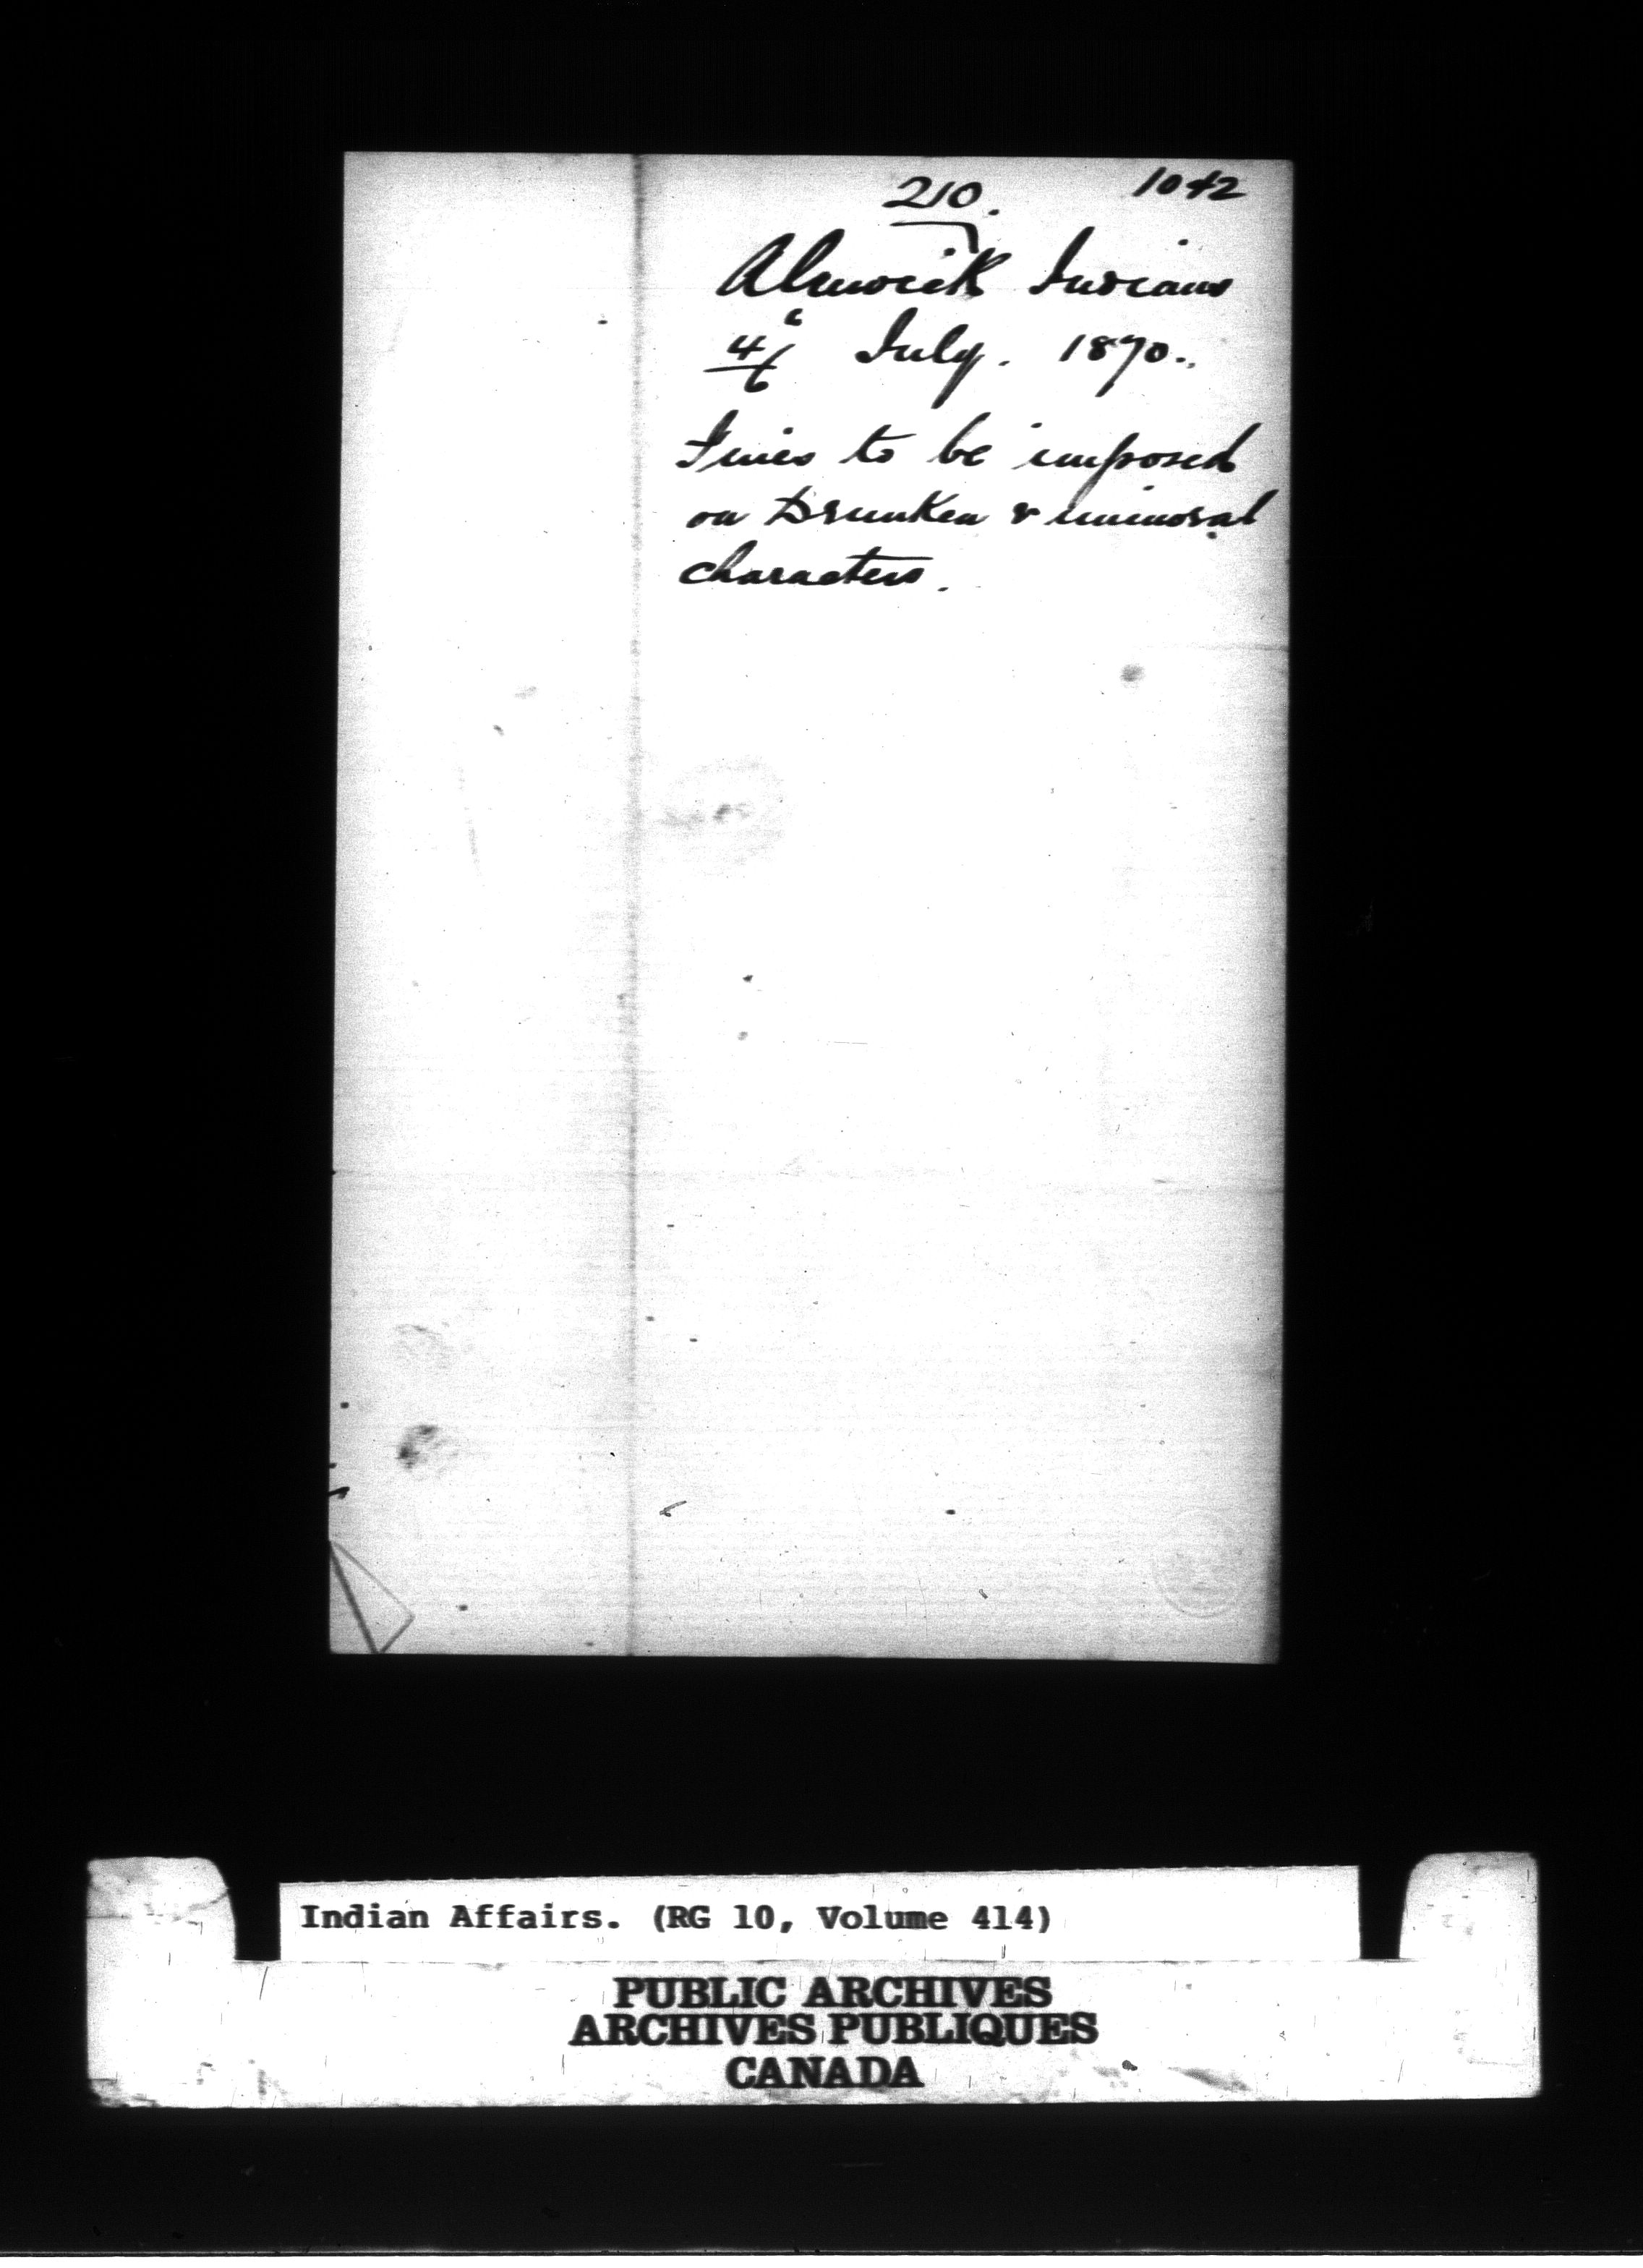 210.
1042
Alnwick Indians
4/6 July. 1870.
Fines to be imposed
on Drunken & immoral
characters.
Indian Affairs. (RG 10, Volume 414)
PUBLIC ARCHIVES
ARCHIVES PUBLIQUES
CANADA